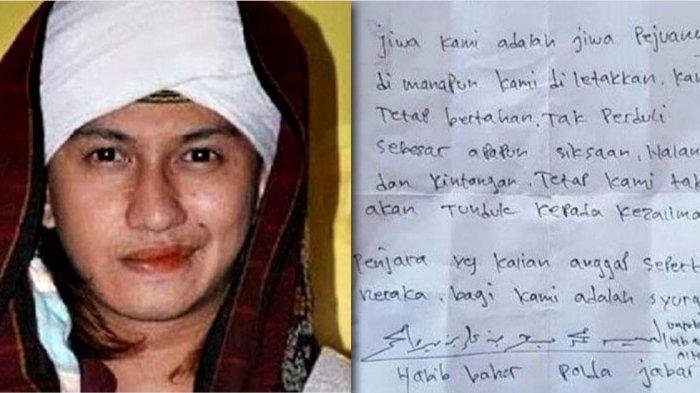 jiwa kami adalah jiwa pejuang
di manapun kami di letakkan. ka
Tetap bertahan. Tak Perduli
sebesar apapun siksaan, Halan
dan Rintangan. Tetap kami tak
akan Tunduk kepada kezalima
penjara yg kalian anggap sepert
neraka. bagi kami adalah syur
Habib bahar polda jabar